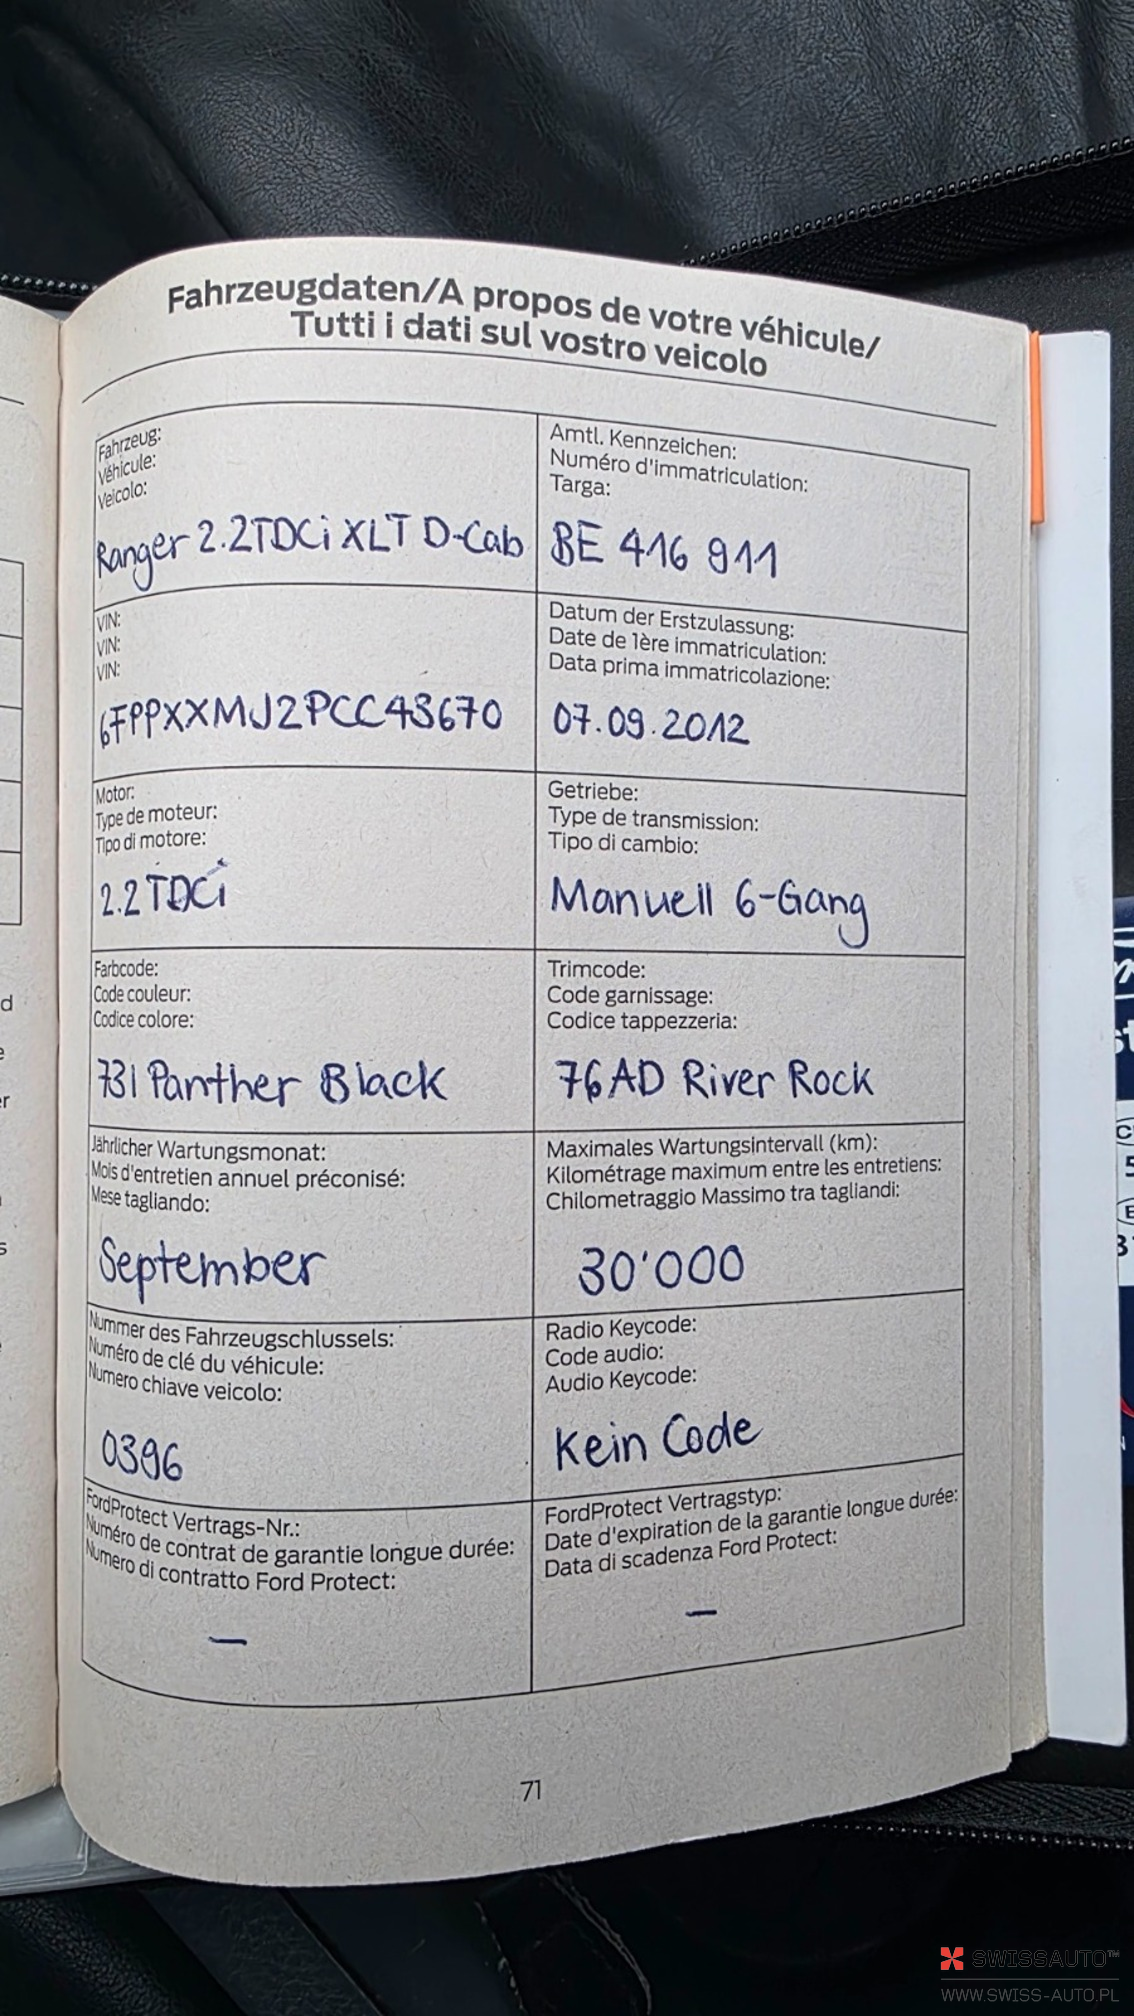 Fahrzeugdaten/A propos de votre véhicule/
Tutti i dati sul vostro veicolo
Fahrzeug:
Véhicule:
Veicolo:
Ranger 2.2TDCi XLT D-Cab
Amtl. Kennzeichen:
Numéro d'immatriculation:
Targa:
BE 416 911
VIN:
VIN:
VIN:
6FPPXXMJ2PCC43670
Datum der Erstzulassung:
Date de 1ère immatriculation:
Data prima immatricolazione:
07.09.2012
Motor:
Type de moteur:
Tipo di motore:
2.2 TDCi
Getriebe:
Type de transmission:
Tipo di cambio:
Manuell 6-Gang
Farbcode:
Code couleur:
Codice colore:
731 Panther Black
Trimcode:
Code garnissage:
Codice tappezzeria:
76AD River Rock
Jährlicher Wartungsmonat:
Mois d'entretien annuel préconisé:
Mese tagliando:
September
Maximales Wartungsintervall (km):
Kilométrage maximum entre les entretiens:
Chilometraggio Massimo tra tagliandi:
30'000
Nummer des Fahrzeugschlussels:
Numéro de clé du véhicule:
Numero chiave veicolo:
0396
Radio Keycode:
Code audio:
Audio Keycode:
Kein Code
FordProtect Vertrags-Nr.:
Numéro de contrat de garantie longue durée:
Numero di contratto Ford Protect:
—
FordProtect Vertragstyp:
Date d'expiration de la garantie longue durée:
Data di scadenza Ford Protect:
—
71
SWISSAUTO™
WWW.SWISS-AUTO.PL